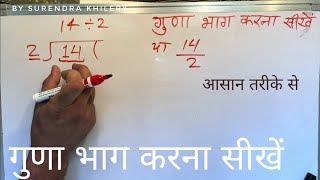 BY SURENDRA KHILERY
14 ÷ 2
गुणा भाग करना सीखें
2)14(
या 14/2
आसान तरीके से
गुणा भाग करना सीखें